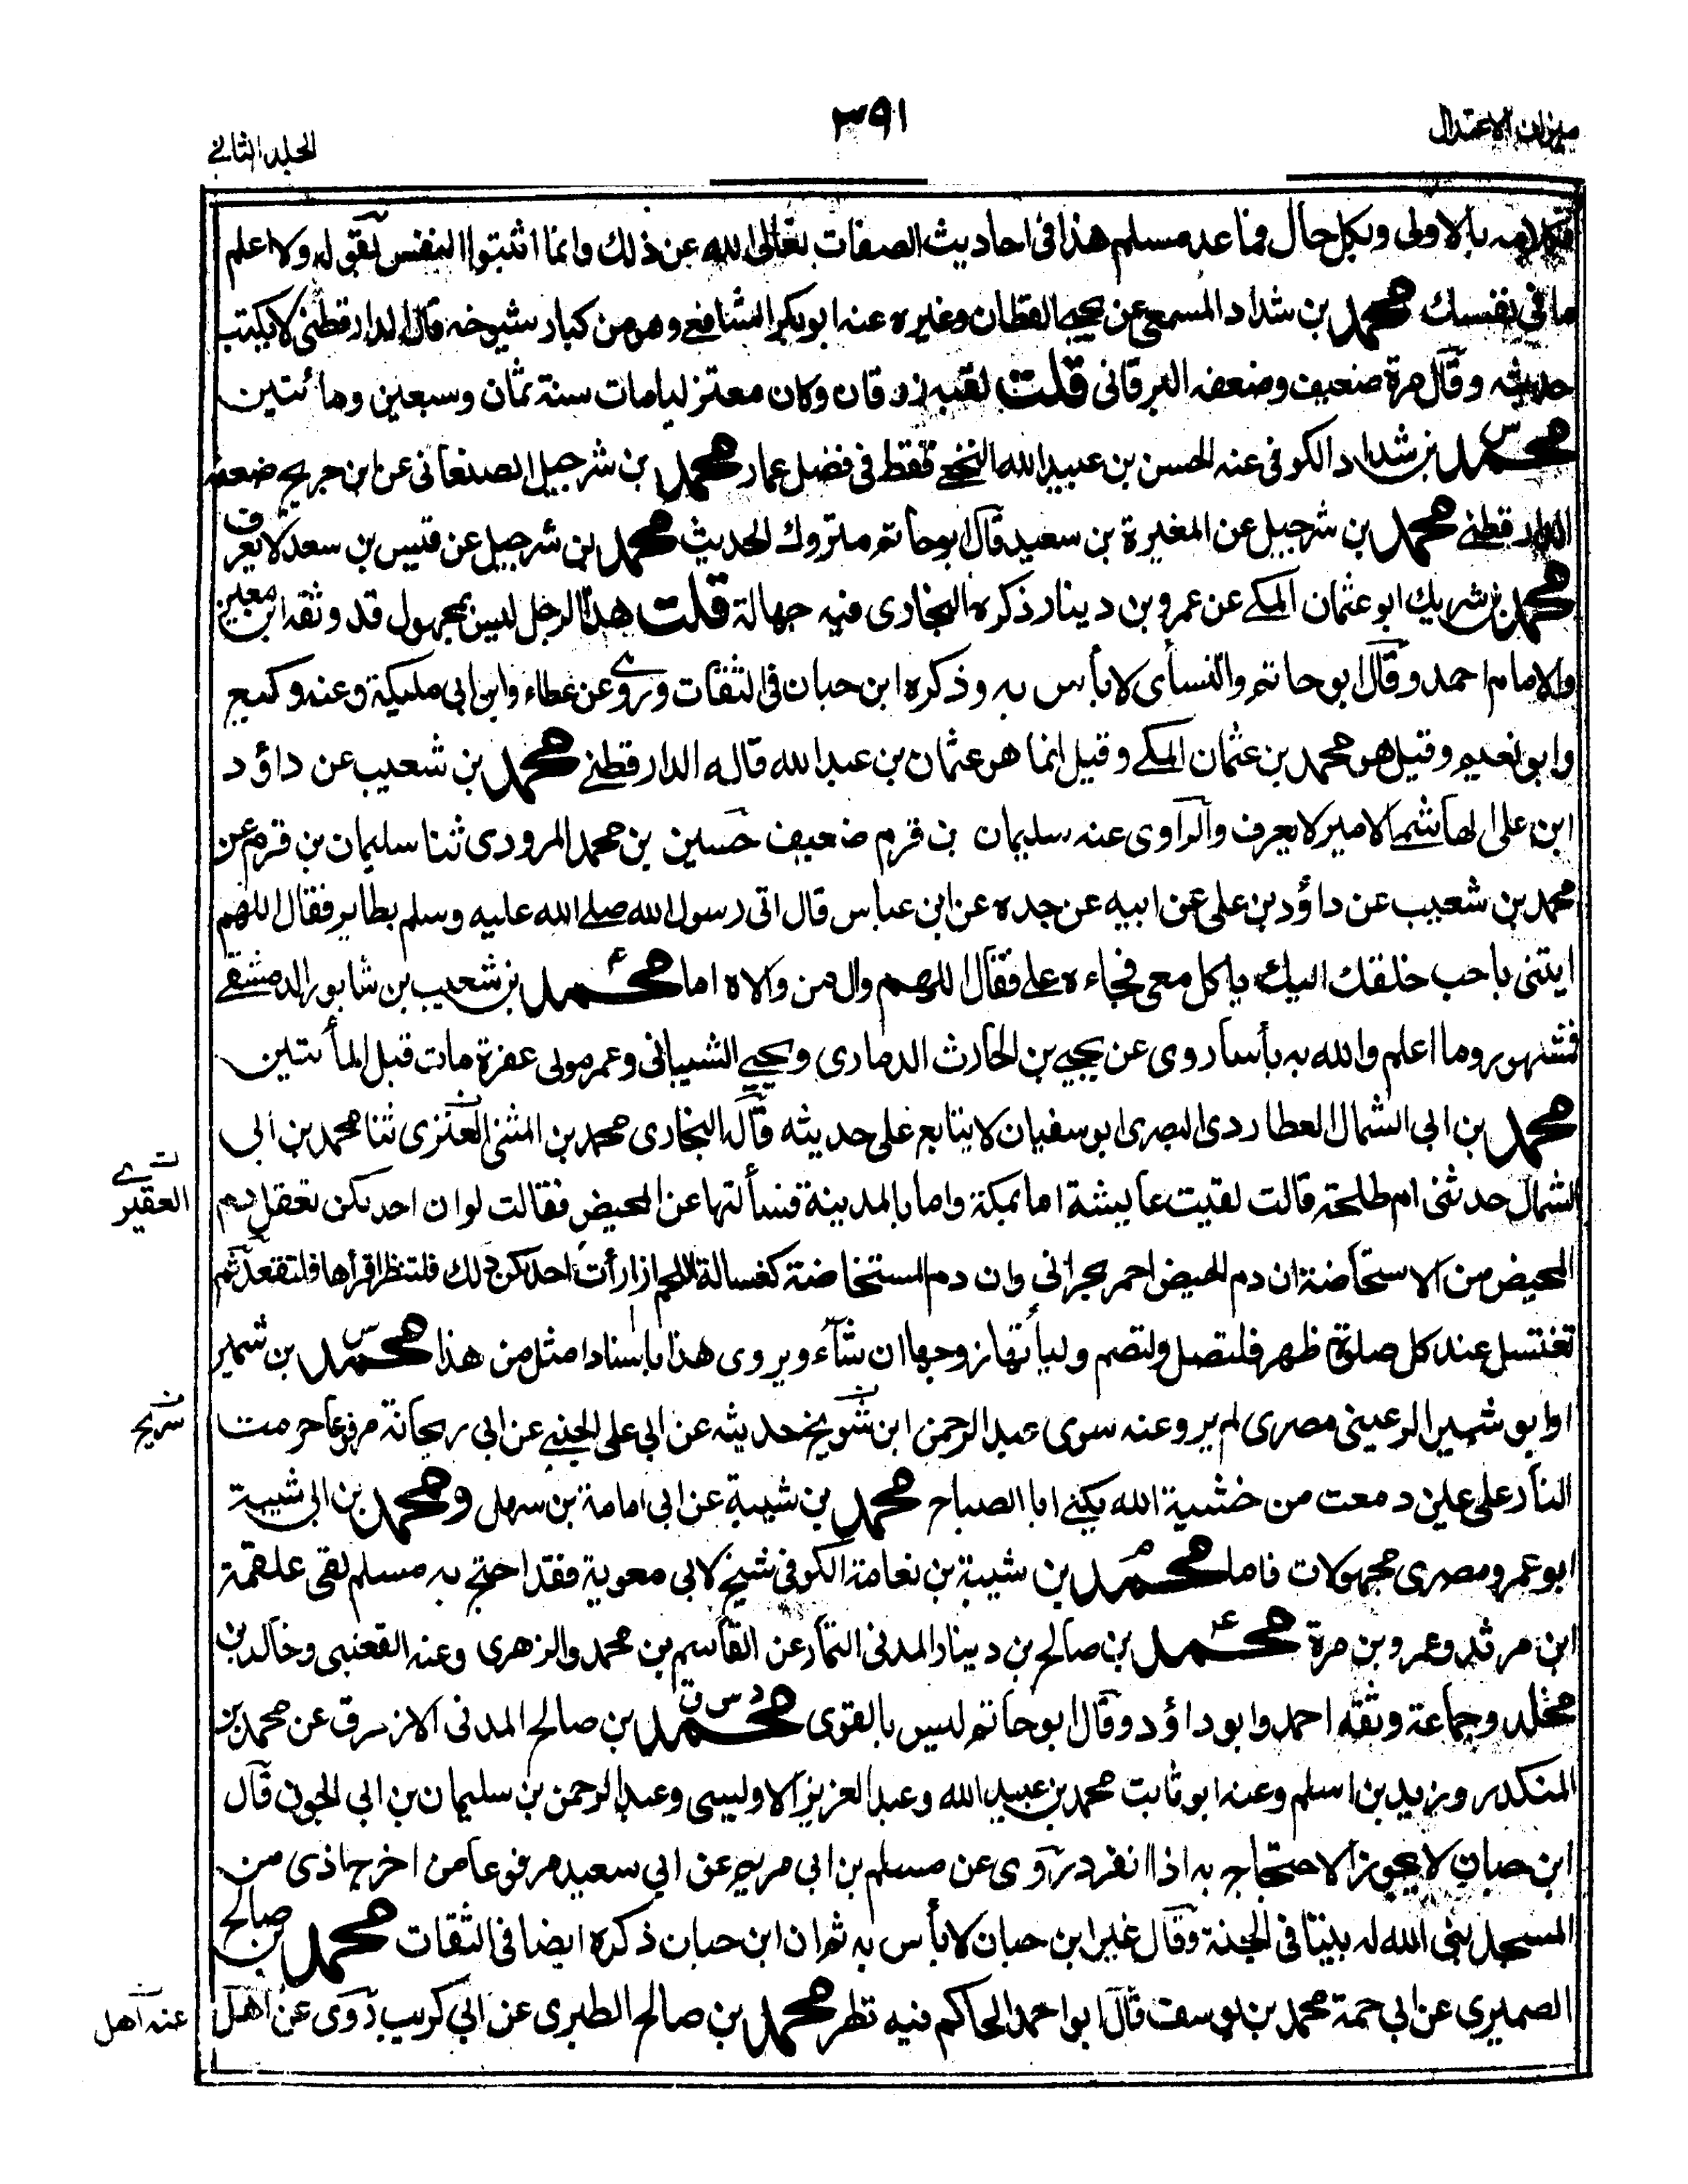 ميزان الاعتدال
٣٩١
الجلد الثاني
فكلامه بالاولى وبكل حال فما عد مسلم هذا فى احاديث الصفات تعالى الله عن ذلك وانما اثبتوا النفس بقوله ولا اعلم
ما في نفسك محمد بن شداد المسمعى عن يحيى القطان وغيره عنه ابو بكر الشافعي وهو من كبار شيوخه قال الدارقطنى لا يكتب
حديثه وقال مرة ضعيف وضعفه البرقانى قلت لقبه زرقان وكان معتزليا مات سنة ثمان وسبعين ومائتين
محمد بن شداد الكوفى عنه الحسن بن عبيد الله النخعي فقط في فضل عمار محمد بن شرحبيل الصنعانى عن ابن جريج ضعفه
الدارقطني محمد بن شرحبيل عن المغيرة بن سعيد قال ابو حاتم متروك الحديث محمد بن شرحبيل عن قيس بن سعد لا يعرف
محمد بن شريك ابو عثمان المكي عن عمرو بن دينار ذكره البخارى فيه جهالة قلت هذا الرجل ليس بمجهول قد وثقه ابن معين
والامام احمد وقال ابو حاتم والنسأى لا بأس به وذكره ابن حبان فى الثقات وروى عن عطاء وابن ابى مليكة وعنه وكيع
وابو نعيم وقيل هو محمد بن عثمان المكي وقيل انما هو عثمان بن عبد الله قاله الدارقطني محمد بن شعيب عن داؤد
ابن على الهاشمى الامير لا يعرف والراوى عنه سليمان بن قرم ضعيف حسين بن محمد المرودى ثنا سليمان بن قرم عن
محمد بن شعيب عن داؤد بن على عن ابيه عن جده عن ابن عباس قال اتى رسول الله صلى الله عليه وسلم بطاير فقال اللهم
ايتنى باحب خلقك اليك ياكل معى فجاءه على فقال اللهم وال من والاه اما محمد بن شعيب بن شابور الدمشقي
فشهور وما اعلم والله به بأسا روى عن يحيى بن الحارث الدمارى ويحيى الشيبانى وعمر مولى عفرة مات قبل المأتين
محمد بن ابي الشمال العطاردى البصرى ابو سفيان لا يتابع على حديثه قاله البخارى محمد بن المثنى العنزى ثنا محمد بن ابى
الشمال حدثنى ام طلحة قالت لقيت عايشة اما بمكة واما بالمدينة فسألتها عن المحيض فقالت لو ان احدكن تعقل دم
المحيض من الاستحاضة ان دم الحيض احمر بحرانى وان دم المستحاضة كغسالة اللحم اذا رأت احدكن ذلك فلتنظر اقرأها فلتقعد ثم
تغتسل عند كل صلوة ظهر فلتصل ولتصم وليأتها زوجها ان شآء ويروى هذا باسناد امثل من هذا محمد بن شمير
او ابو شمير الرعينى مصرى لم يرو عنه سوى عبد الرحمن ابن شويخ حديثه عن ابي على الجنبي عن ابي ريحانة مرفوعا حرمت
النار على عين دمعت من خشية الله يكنى ابا الصباح محمد بن شيبة عن ابى امامة بن سهل ومحمد بن ابى شيبة
ابو عمرو مصرى مجهولات فاما محمد بن شيبة بن نعامة الكوفى شيخ لابي معوية فقد احتج به مسلم لقى علقمة
ابن مرثد وعمرو بن مرة محمد بن صالح بن دينار المدنى التمار عن القاسم بن محمد والزهرى وعنه القعنبى وخالد بن
مخلد وجماعة وثقه احمد وابو داؤد وقال ابو حاتم ليس بالقوى محمد بن صالح المدنى الازرق عن محمد بن
المنكدر وزيد بن اسلم وعنه ابو ثابت محمد بن عبيد الله وعبد العزيز الاوليسى وعبد الرحمن بن سليمان بن ابي الجون قال
ابن حبان لا يجوز الاحتجاج به اذا انفرد روى عن مسلم بن ابى مريم عن ابي سعيد مرفوعا من اخرج اذى من
المسجد بنى الله له بيتا فى الجنة وقال غير ابن حبان لا بأس به ثم ان ابن حبان ذكره ايضا فى الثقات محمد بن صالح
الصميرى عن ابى حمة محمد بن يوسف قال ابو احمد الحاكم فيه نظر محمد بن صالح الطبرى عن ابي كريب روى عن اهل
العقير
شريح
عنه اهل